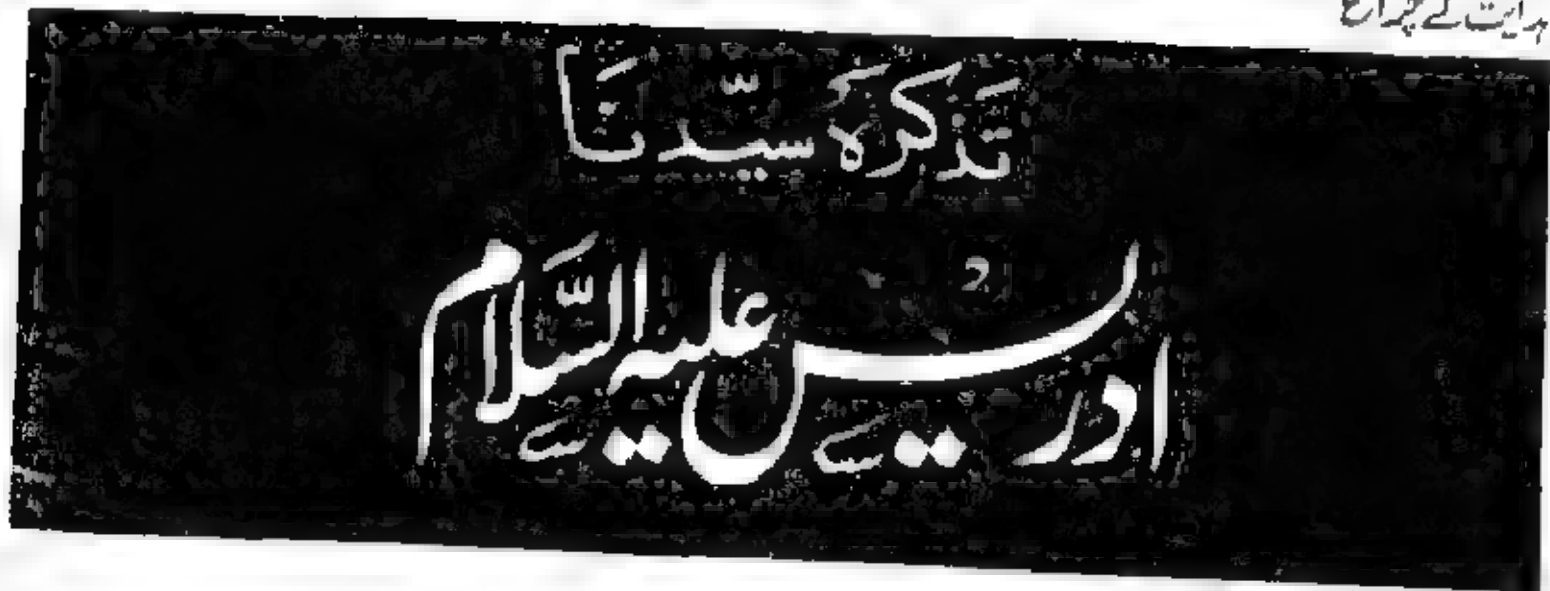 ہدایت کے چراغ
تذکرہ سیّدنَا
ادریس علیہ السَّلام